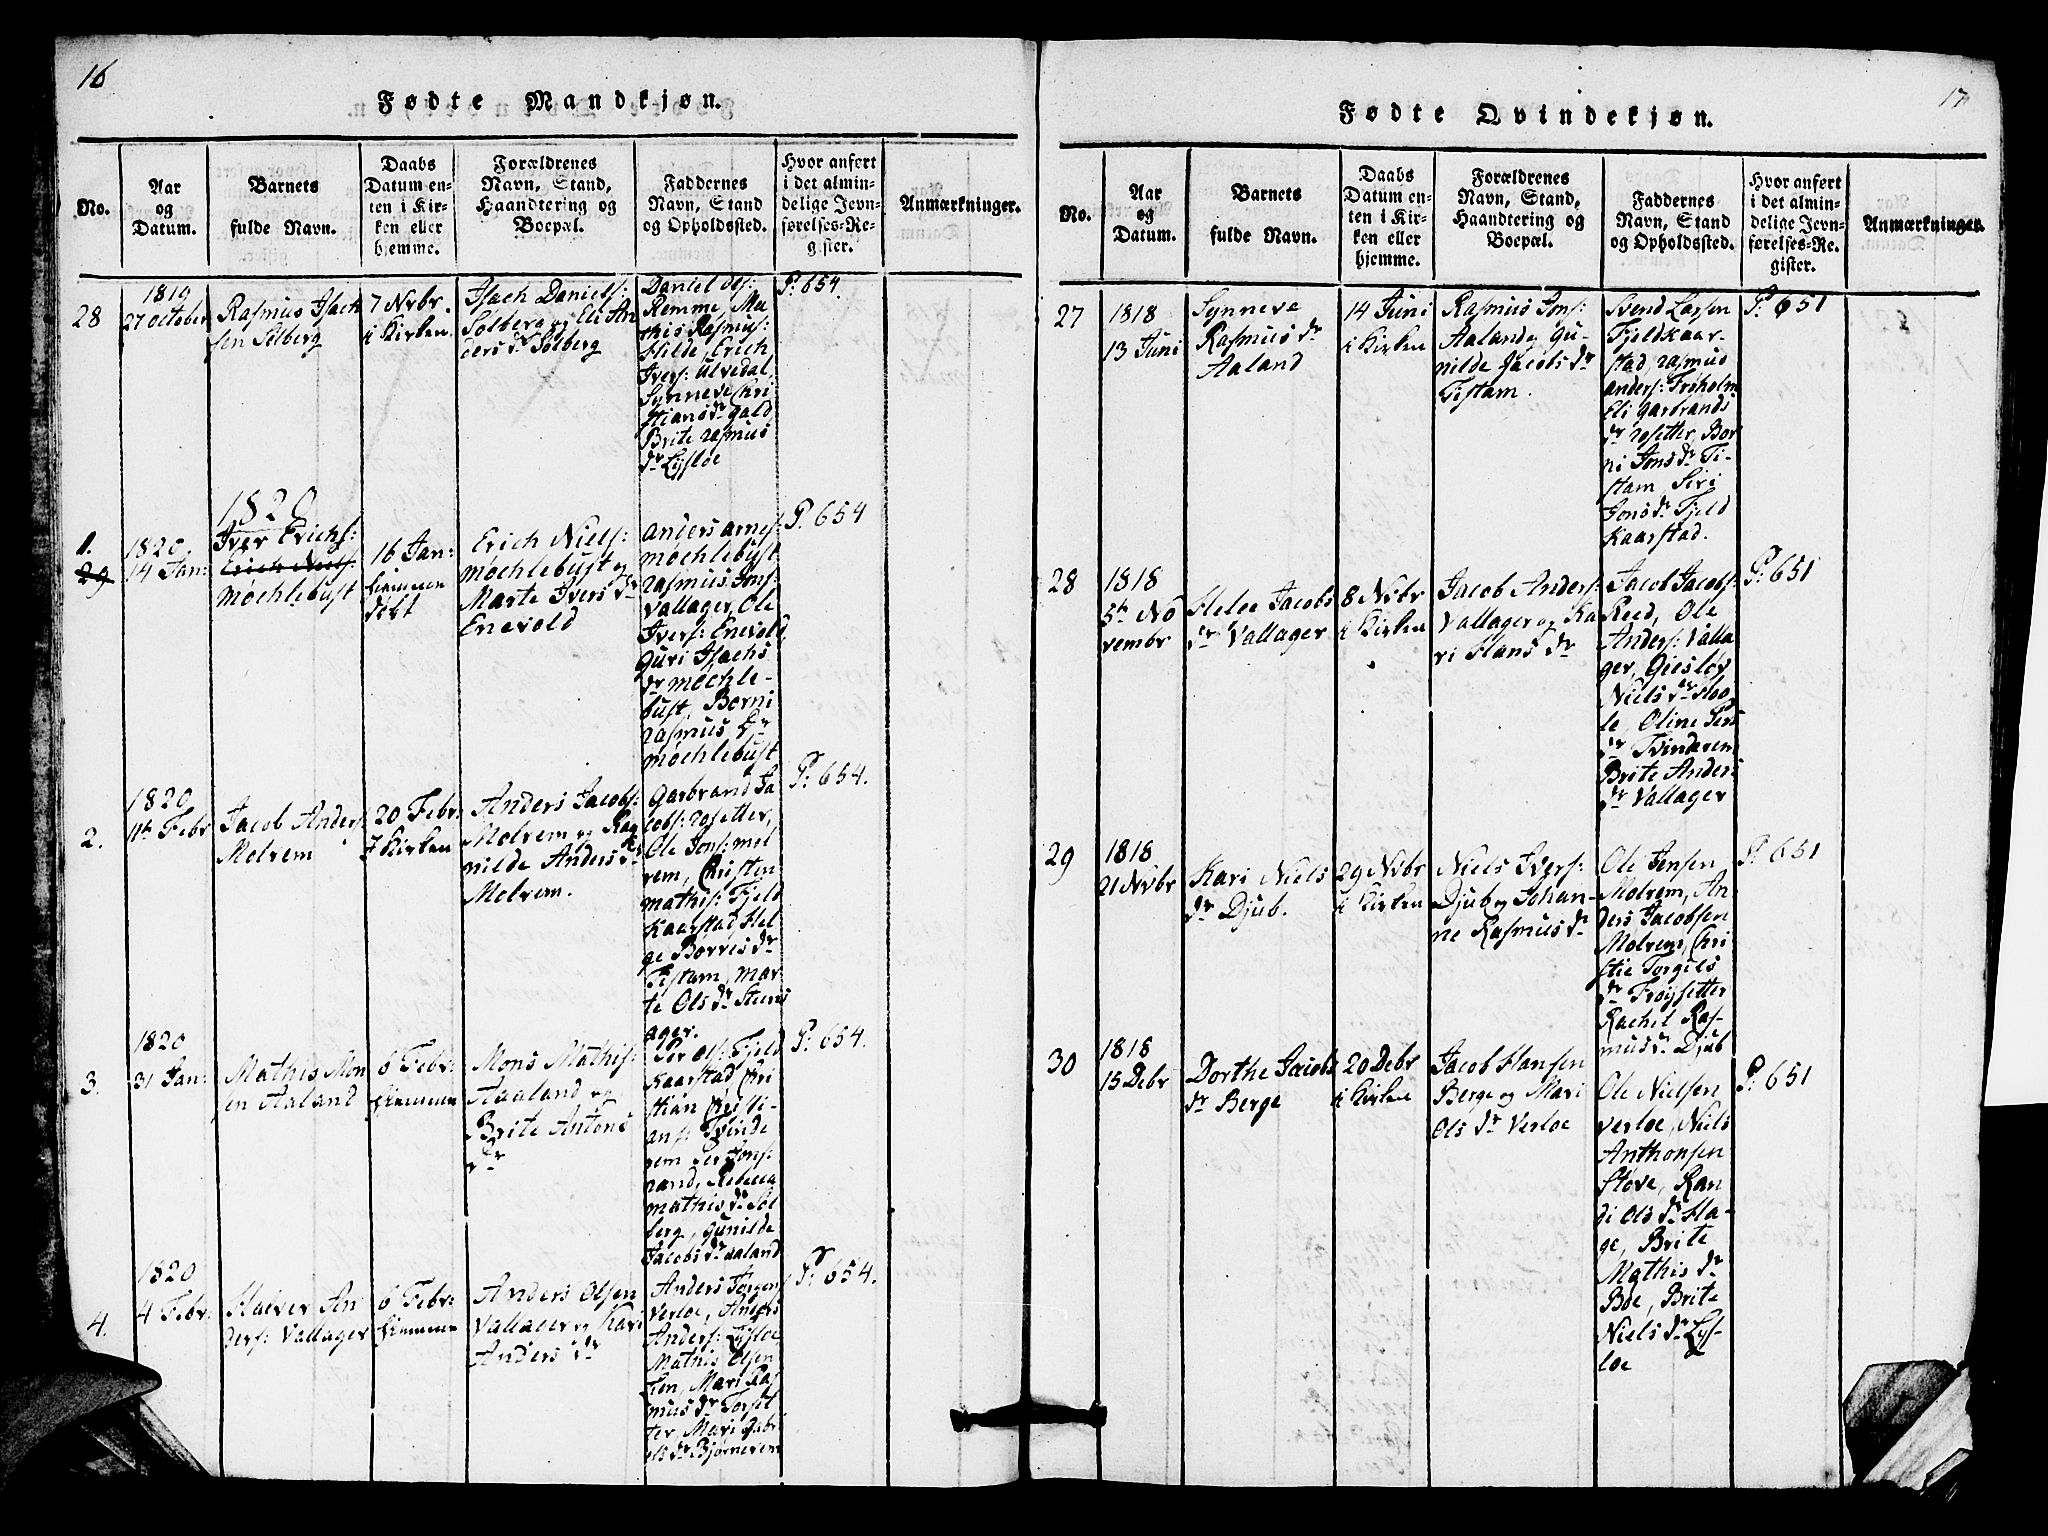 16
Fødte Mandkjøn.
No.
Aar
og
Datum.
Barnets
fulde Navn.
Daabs
Datum en-
ten i Kir-
ken eller
hjemme.
Forældrenes
Navn, Stand,
Haandtering og
Boepæl.
Faddernes
Navn, Stand
og Opholdssted.
Hvor anført
i det almin-
delige Jevn-
førelses-Re-
gister.
Anmærkninger.
28
1819
27 October
Rasmus Isach
sen Solberg
7 Nvbr.
i Kirken.
Isach Daniels:
Solberg og Eli An
ders dr Solberg
Daniel Ols:
Remme, Ma
this Rasmus:
Hilde, Erich
Ivers: Ulvedal,
Synneve Chri
stians dr Gald
Brite Rasmus
dr Lysloe
P: 654.
1820
1.
29
1820
14 Jan:
Iver Erichs:
Erich Niels:
Møchlebust
16 Jan:
hiemme
døbt
Erich Niels:
Møchlebust og
Marte Ivers dr
Enevold
Anders Arnes:
Møchlebust
Rasmus Jons:
Vallager, Ole
Ivers: Enevold
Guri Isachs
dr Møchle-
bust, Borni
Rasmus dr
Møchlebust
P. 654
2.
1820
11th Febr
Jacob Anders
Molvem
20 Febr:
i Kirken
Anders Jacobs:
Molvem og Rag
nilde Anders dr
Molvem.
Garbrand Ja
cobs: Rosetter,
Ole Jons: Mol
vem, Christen
Mathis: Fjeld
kaarstad Hel
ge Borres dr
Tistam, Mar
te Ols dr Steens
ager.
P: 654.
3.
1820
31 Jan:
Mathis Mon
en Aaland
6 Febr:
hiemme
Mons Mathis:
Aaaland og
Brite Antons
dr
Per Ols: Fjeld
kaarstad Chri
stian Christi
ans: Tvinde
rem Per Jons:
Rand, Rebecca
Mathis dr Sol
berg, Gunilde
Jacobs dr Aaland
P: 654.
4.
1820
4 Febr:
Halver An
ders: Vallager
6 Febr:
hiemme
Anders Olsen
Vallager og Kari
Anders dr
Anders Jorgens
Verloe, Anders
Anders: Lysloe
Mathis Olsen
Mari Ras
mus dr Torset
ter, Mari Gabri
els dr Bjørnerem
P: 654.
17
Fødte Qvindekjøn.
No.
Aar
og
Datum.
Barnets
fulde Navn.
Daabs
Datum en-
ten i Kir-
ken eller
hjemme.
Forældrenes
Navn, Stand,
Haandtering og
Boepæl.
Faddernes
Navn, Stand
og Opholdssted.
Hvor anført
i det almin-
delige Jevn-
førelses-Re-
gister.
Anmærkninger.
27
1818
13 Juni
Synneve
Rasmus dr
Aaland
14 Juni
i Kirken
Rasmus Jons:
Aaland og Gu-
nilde Jacobs dr
Tistam.
Svend Larsen
Fjeldkaar-
stad, Rasmus
Anders: Frøholm
Eli Garbrands
dr Rosetter, Bor
ni Jons dr Ti-
stam Siri
Jons dr Fjeld
kaarstad.
P: 651
28
1818
5th No
vembr
Heloe Jacobs
dr Vallager
8 Nvbr
i Kirken
Jacob Anders:
Vallager og Ka
ri Hans dr
Jacob Jacobs:
Reed, Ole
Anders: Valla
ger, Giesløv
Niels dr Hoo
le, Oline Pers
dr Tvinderem
Brite Anders
dr Vallager
P: 651
29
1818
21 Nvbr
Kari Niels
dr Djub.
29 Nvbr
i Kirken
Niels Ivers:
Djub og Johan-
ne Rasmus dr
Ole Jensen
Molvem, An
ders Jacobsen
Molvem, Chri
stie Torgils
dr Frøysetter
Rachel Ras-
mus dr Djub
P: 651
30
1818
15 Debr
Dorthe Jacobs
dr Berge
20 Debr
i Kirken
Jacob Hansen
Berge og Mari
Ols dr Verloe
Ole Nielsen
Verloe, Niels
Anthonsen
Hove, Ran
di Ols dr Ha-
ge, Brite
Mathis dr
Boe, Brite
Niels dr Lys-
loe
P: 651